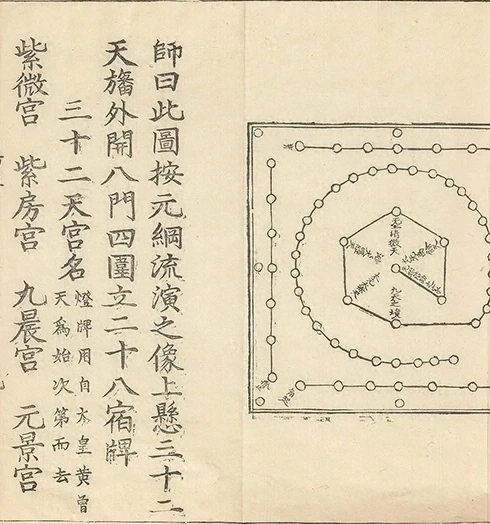 師曰此圖按元綱流演之像上懸三十二
天旛外開八門四圍立二十八宿牌
三十二天宮名
燈牌用自太皇黄曾
天爲始次第而去
紫微宮 紫房宮 九晨宮 元景宮